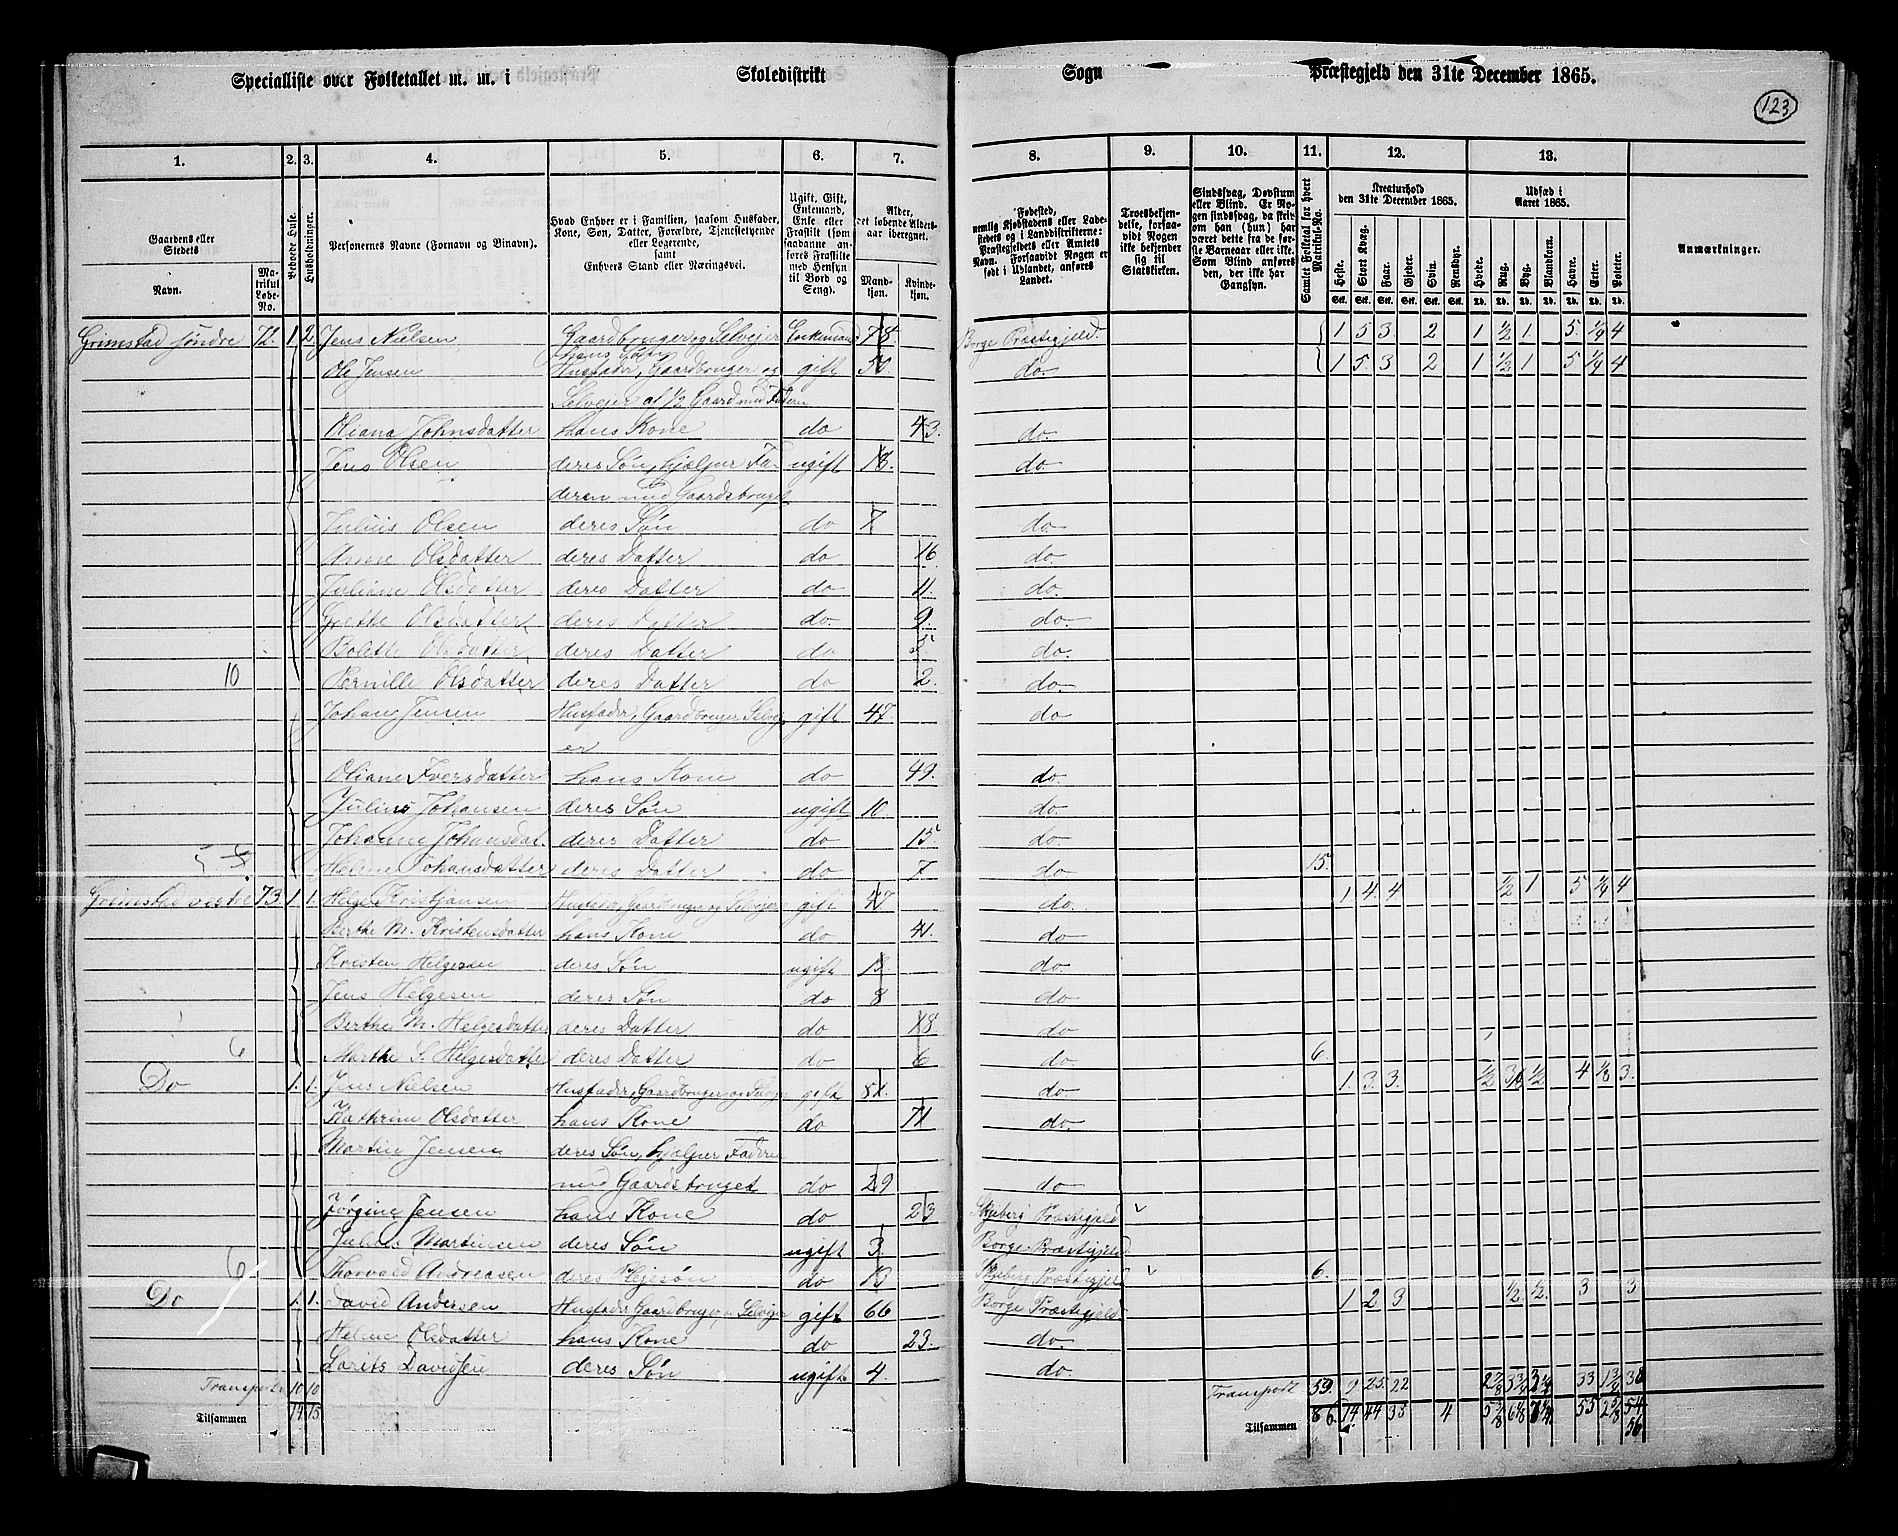 Specialliste over Folketallet m. m. i Skoledistrikt Sogn Præstegjeld den 31te December 1865.
123
1. 2. 3. 4. 5. 6. 7. 8. 9. 10. 11. 12. 13.
Gaardens eller Stedets
Navn.
Matrikul Løbe-No.
Beboede Huse.
Husholdninger.
Personernes Navne (Fornavn og Binavn).
Hvad Enhver er i Familien, saasom Husfader, Kone, Søn, Datter, Forældre, Tjenestetyende eller Logerende,
samt
Enhvers Stand eller Næringsvei.
Ugift, Gift, Enkemand, Enke eller Frastilt (som saadanne anføres Fraskilte med Hensyn til Bord og Seng).
Alder, det løbende Aldersaar iberegnet.
Mandkjøn. Kvindekjøn.
Fødested, nemlig Kjøbstadens eller Ladestedets og i Landdistrikterne: Præstegjeldets eller Amtets Navn. Forsaavidt Nogen er født i Udlandet, anføres Landet.
Troesbekjendelse, forsaavidt Nogen ikke bekjender sig til Statskirken.
Sindssvag, Døvstum eller Blind. Er Nogen sindssvag, da skrives om han (hun) har været dette fra de første Barneaar eller ikke. Som Blind anføres den, der ikke har Gangsyn.
Samlet Folketal for hvert Matrikul-No.
Kreaturhold den 31te December 1865.
Heste. Stort Kvæg. Faar. Gjeder. Svin. Rensdyr.
Udsæd i Aaret 1865.
Hvede. Rug. Byg. Blandkorn. Havre. Erter. Poteter.
Anmærkninger.
Grimstad søndre 72. 1. 2 Jens Nielsen Gaardbruger og Selveier Enkemand 78 Borge Præstegjeld. 1 5 3 2 1 1/2 1 5. 1/4 4
hans Søn
Ole Jensen Husfader, Gaardbruger og gift 50. do 1 5. 3 2 1 1/2 1 5 1/4 4
Selveier af 1/2 Gaard med Faderen
Oliana Johnsdatter hans Kone do 43. do.
Jens Olsen deres Søn, hjælper Fa- ugift 18. do
deren med Gaardsbruget
Julius Olsen deres Søn do 7 do
Anne Olsdatter deres Datter do 16 do.
Juliane Olsdatter deres Datter do 11. do.
Grethe Olsdatter deres Datter do. 9. do.
Bolette Olsdatter deres Datter do 5. do.
10 Pernille Olsdatter deres Datter do 2. do.
Johan Jensen Husfader, Gaardbruger Selvei- gift 47. do
er
Oliane Iversdatter hans Kone do 49. do.
Julius Johansen deres Søn ugift 10. do.
Johanne Johansdat. deres Datter do 15 do.
5 Helene Johansdatter deres Datter do. 7 do 15.
Grimstad vestre 73. 1. 1. Helge Kristjansen Husfader, Gaardbruger og Selveier gift do. 1. 4. 4 1/2 1 5 1/4 4
Berthe M. Kristensdatter hans Kone do 41. do
Kristen Helgesen deres Søn ugift 13 do.
Jens Helgesen deres Søn do 8 do
Berthe M. Helgesdatter deres Datter do 18. do
6 Marthe S. Helgesdatter deres Datter do 6 do. 6.
Do 1. 1. Jens Nielsen Husfader, Gaardbruger og Selveier gift 81. do 1. 3. 3. 1/2 3/4 1/2 4 1/8 3.
Kathrine Olsdatter hans Kone do 71 do.
Martin Jensen deres Søn, hjælper Faderen
med Gaardsbruget do 29 do
Jørgine Jensen hans Kone do 23 Skjeberg Præstegjeld
Julius Martinsen deres Søn ugift 3. Borge Præstegjeld
6 Thorvald Andreasen deres Plejesøn do 13 Skjeberg Præstegjeld 6.
Do 1. 1. David Andersen Husfader Gaardbruger og Selveier gift 66 Borge Præstegjeld. 1 2 3 1/2. 1/2. 3 3
Helene Olsdatter hans Kone do 23. do.
Lorits Davidsen deres Søn ugift 4. do.
Transport 10 10 Transport 59. 9 25. 22 33
Tilsammen 14 15 Tilsammen 86. 14 44 35 4 55 54
56